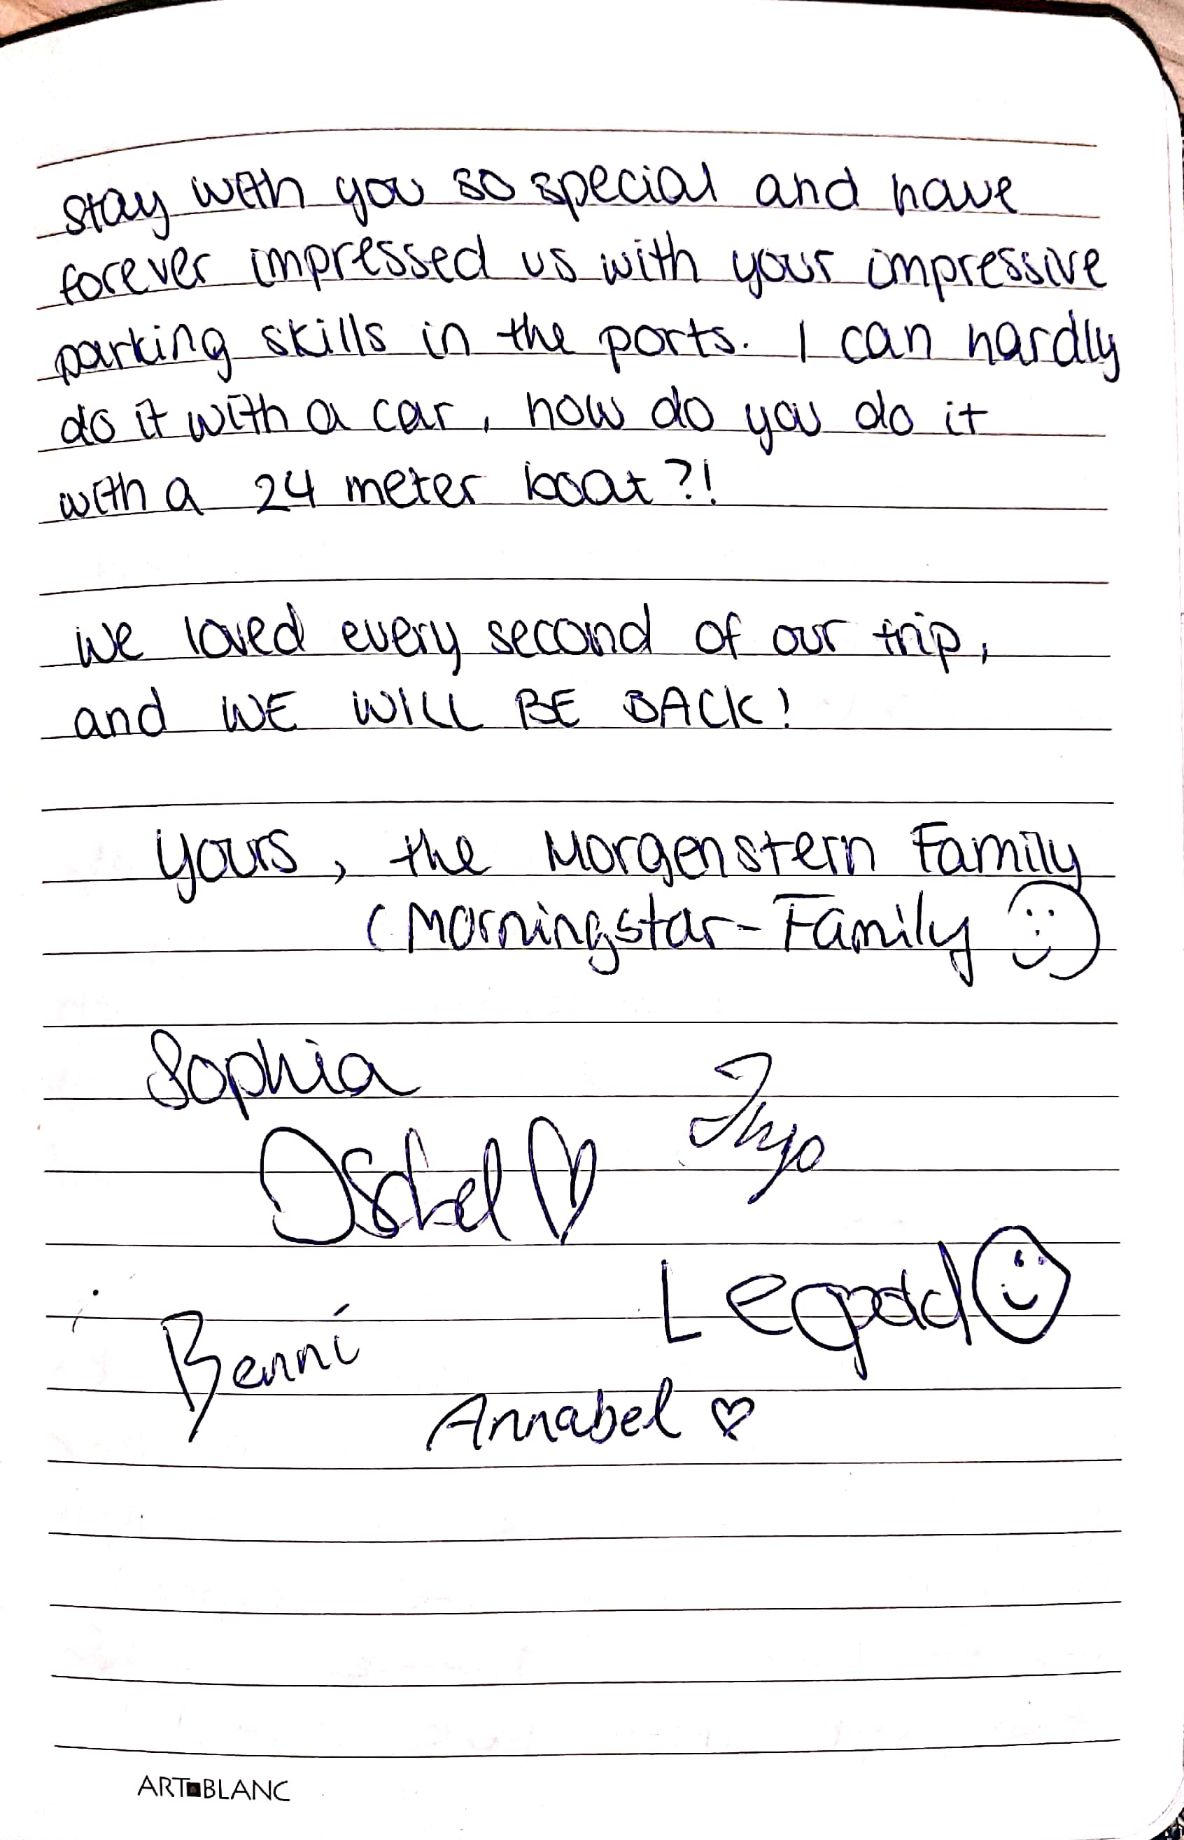 stay with you so special and have
forever impressed us with your impressive
parking skills in the ports. I can hardly
do it with a car, how do you do it
with a 24 meter boat?!
we loved every second of our trip,
and WE WILL BE BACK!
yours, the Morgenstern Family
(Morningstar-Family ☺)
Sophia
Ingo
Isabel ♡
Leopold ☺
Benni
Annabel ♡
ART■BLANC